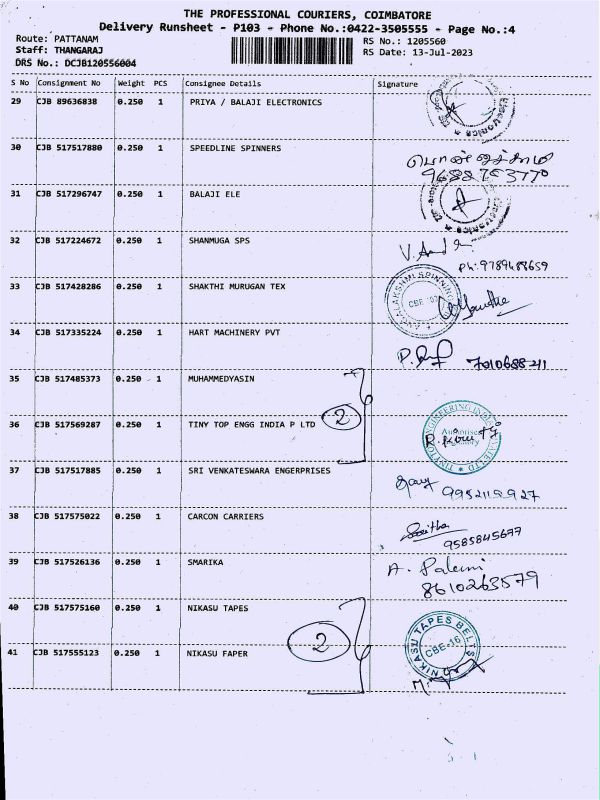 THE PROFESSIONAL COURIERS, COIMBATORE
Delivery Runsheet - P103 - Phone No.:0422-3505555 - Page No.:4
Route: PATTANAM RS No.: 1205560
Staff: THANGARAJ RS Date: 13-Jul-2023
DRS No.: DCJB120556004
S No Consignment No Weight PCS Consignee Details Signature
29 CJB 89636838 0.250 1 PRIYA / BALAJI ELECTRONICS
30 CJB 517517880 0.250 1 SPEEDLINE SPINNERS
31 CJB 517296747 0.250 1 BALAJI ELE
32 CJB 517224672 0.250 1 SHANMUGA SPS
Ph: 9789488659
33 CJB 517428286 0.250 1 SHAKTHI MURUGAN TEX
34 CJB 517335224 0.250 1 HART MACHINERY PVT
35 CJB 517485373 0.250 1 MUHAMMEDYASIN
36 CJB 517569287 0.250 1 TINY TOP ENGG INDIA P LTD 2
37 CJB 517517885 0.250 1 SRI VENKATESWARA ENGERPRISES
38 CJB 517575022 0.250 1 CARCON CARRIERS
9585845677
39 CJB 517526136 0.250 1 SMARIKA A. Palani
8610263579
40 CJB 517575160 0.250 1 NIKASU TAPES
NIKASU TAPES BELTS
CBE-16
2
41 CJB 517555123 0.250 1 NIKASU FAPER